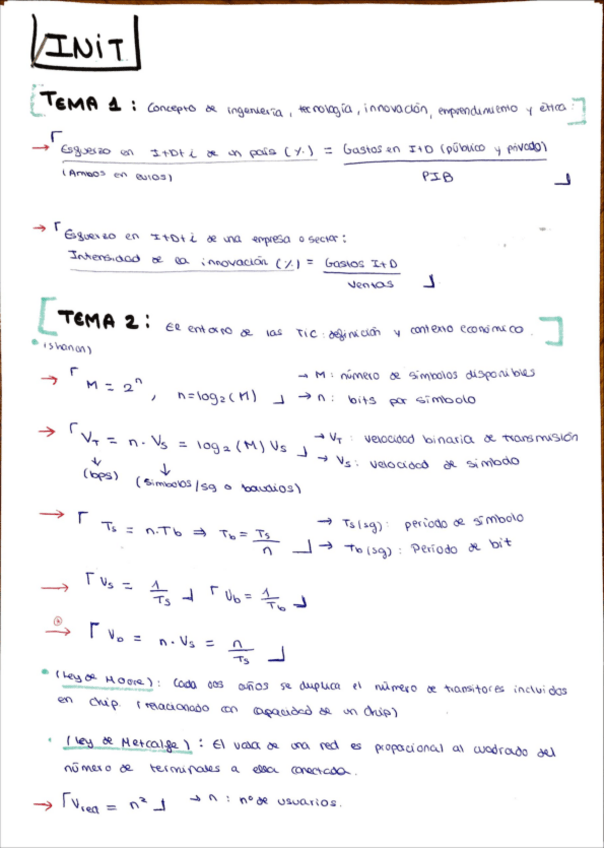 INIT
TEMA 1: Concepto de ingeniería, tecnología, innovación, emprendimiento y ética:
→ Esfuerzo en I+D+i de un país (%) = Gastos en I+D (público y privado) / PIB
(Ambos en euros)
→ Esfuerzo en I+D+i de una empresa o sector:
Intensidad de la innovación (%) = Gastos I+D / Ventas
TEMA 2: El entorno de las TIC: definición y contexto económico.
• (Shanon)
→ M = 2ⁿ, n = log₂(M) → M: número de símbolos disponibles
→ n: bits por símbolo
→ V_T = n · V_S = log₂(M) V_S → V_T: velocidad binaria de transmisión
→ V_S: velocidad de símbolo
(bps) (símbolos/sg o baudios)
→ T_S = n · T_b ⇒ T_b = T_S / n → T_S (sg): período de símbolo
→ T_b (sg): Período de bit
→ V_S = 1 / T_S V_b = 1 / T_b
→ V_b = n · V_S = n / T_S
• (Ley de Moore): Cada dos años se duplica el número de transitores incluidos
en chip. (relacionado con capacidad de un chip)
• (Ley de Metcalfe): El valor de una red es propocional al cuadrado del
número de terminales a ella conectada.
→ V_red = n² → n: nº de usuarios.